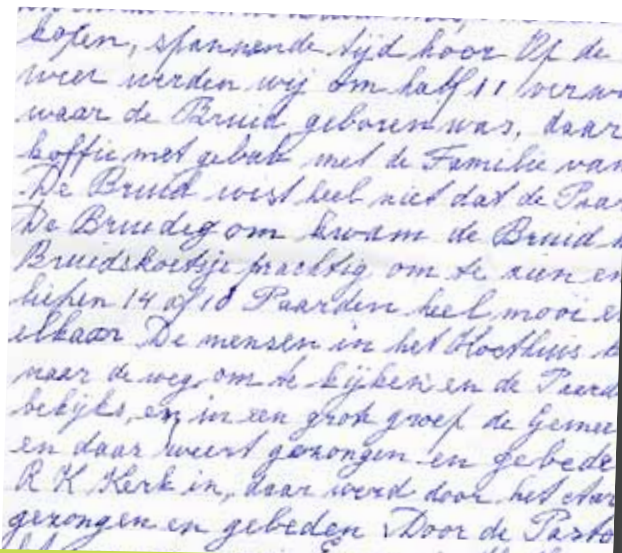 kopen, spannende tijd hoor Op de
weer werden wij om half 11 verw
waar de Bruid geboren was, daar
koffie met gebak met de Familie van
De Bruid wist heel niet dat de Paar
De Bruidegom kwam de Bruid
Bruidskoetsje prachtig om te zien en
liepen 14 of 10 Paarden heel mooi e
elkaar De mensen in het
naar de weg om te kijken en de Paard
bekijks, en in een grote groep de Gemee
en daar weert gezongen en gebede
R K Kerk in, daar werd door het
gezongen en gebeden Door de Pasto